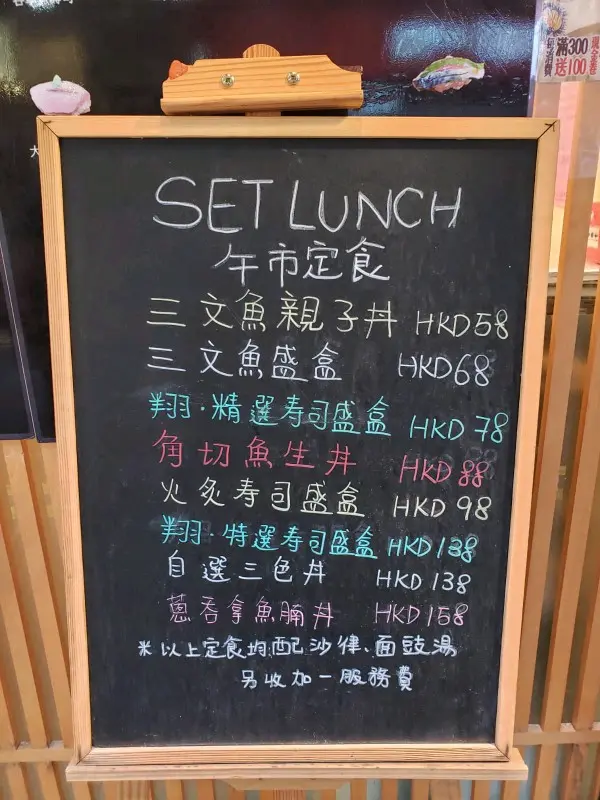 每消費 滿300 送100 現金券
SET LUNCH
午市定食
三文魚親子丼 HKD58
三文魚盛盒 HKD68
翔·精選寿司盛盒 HKD78
角切魚生丼 HKD88
火炙寿司盛盒 HKD98
翔·特選寿司盛盒 HKD138
自選三色丼 HKD138
蔥吞拿魚腩丼 HKD158
米以上定食均配沙律、面豉湯
另收加一服務費